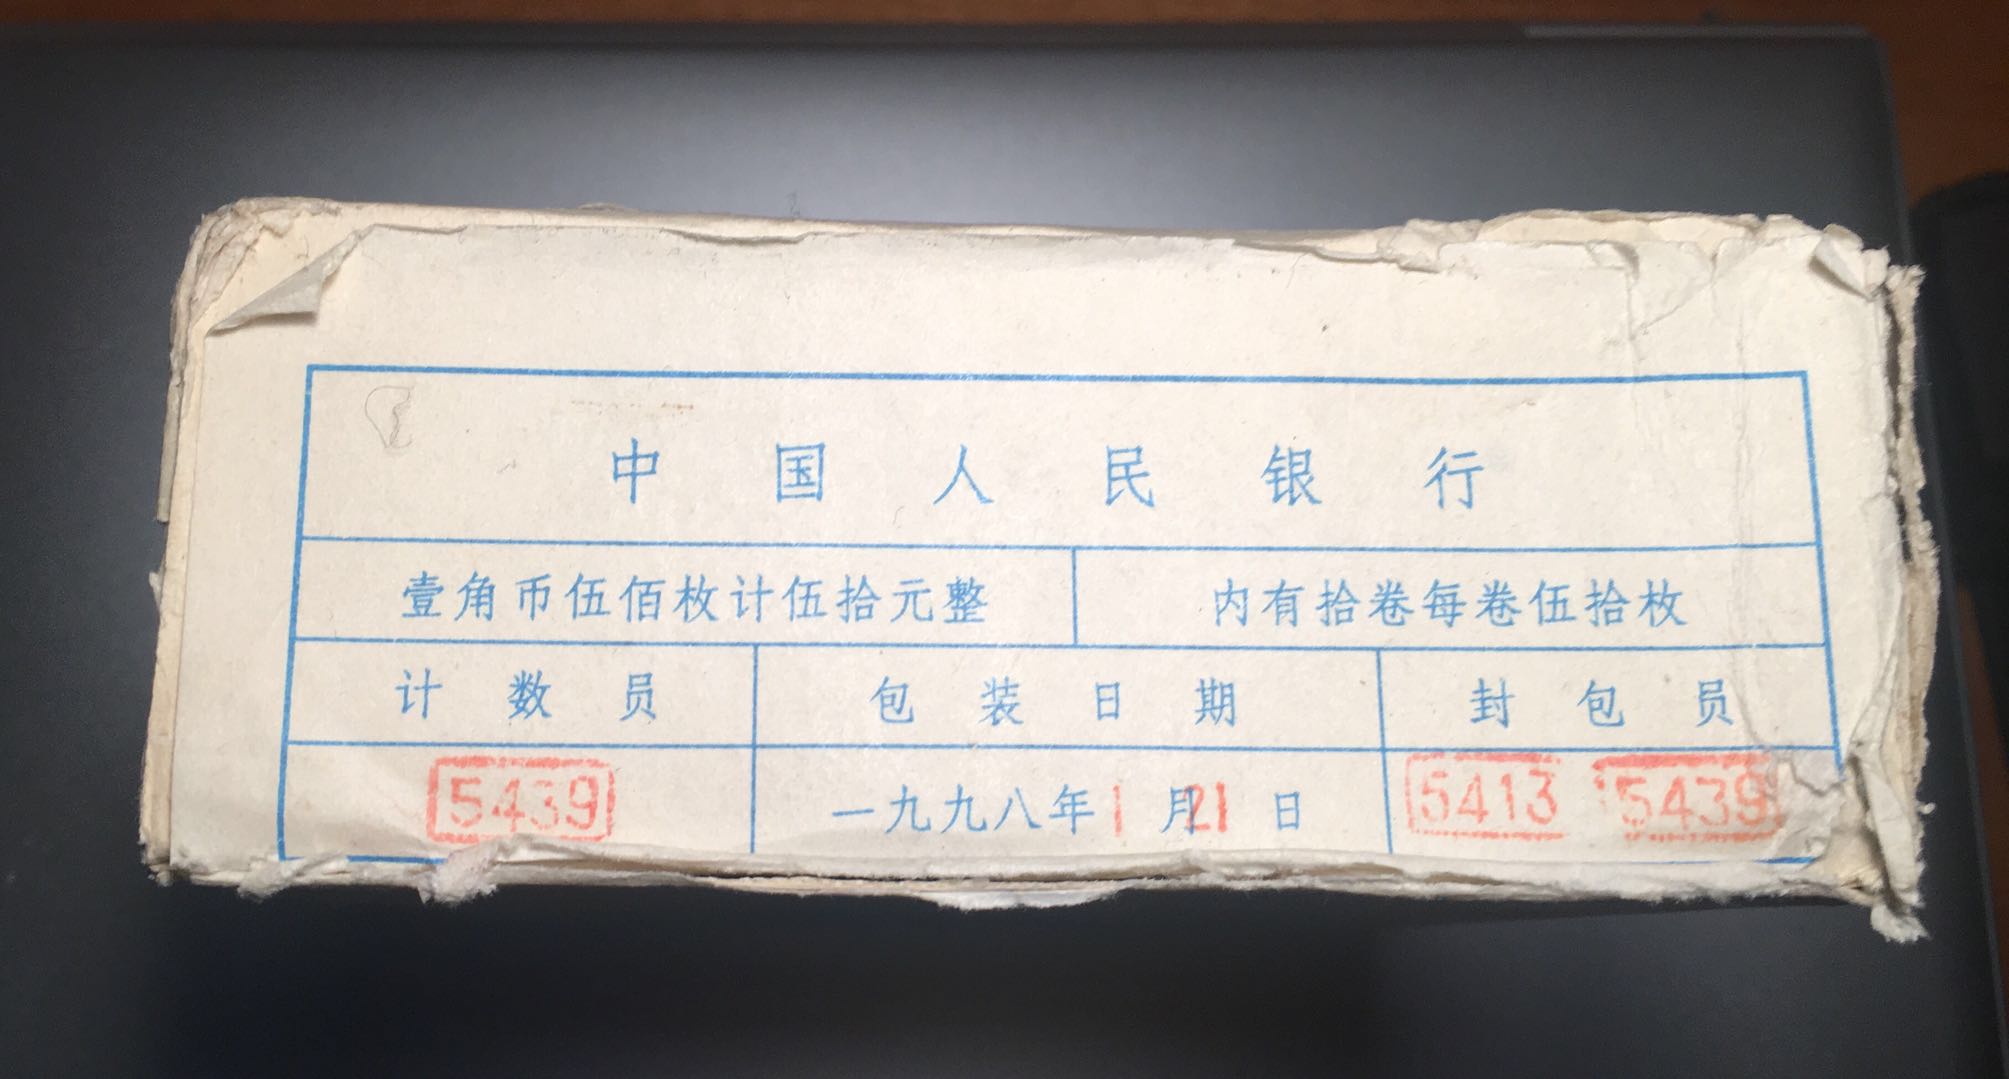 中国人民银行
壹角币伍佰枚计伍拾元整 内有拾卷每卷伍拾枚
计数员 包装日期 封包员
5439 一九九八年1月21日 5413 5439